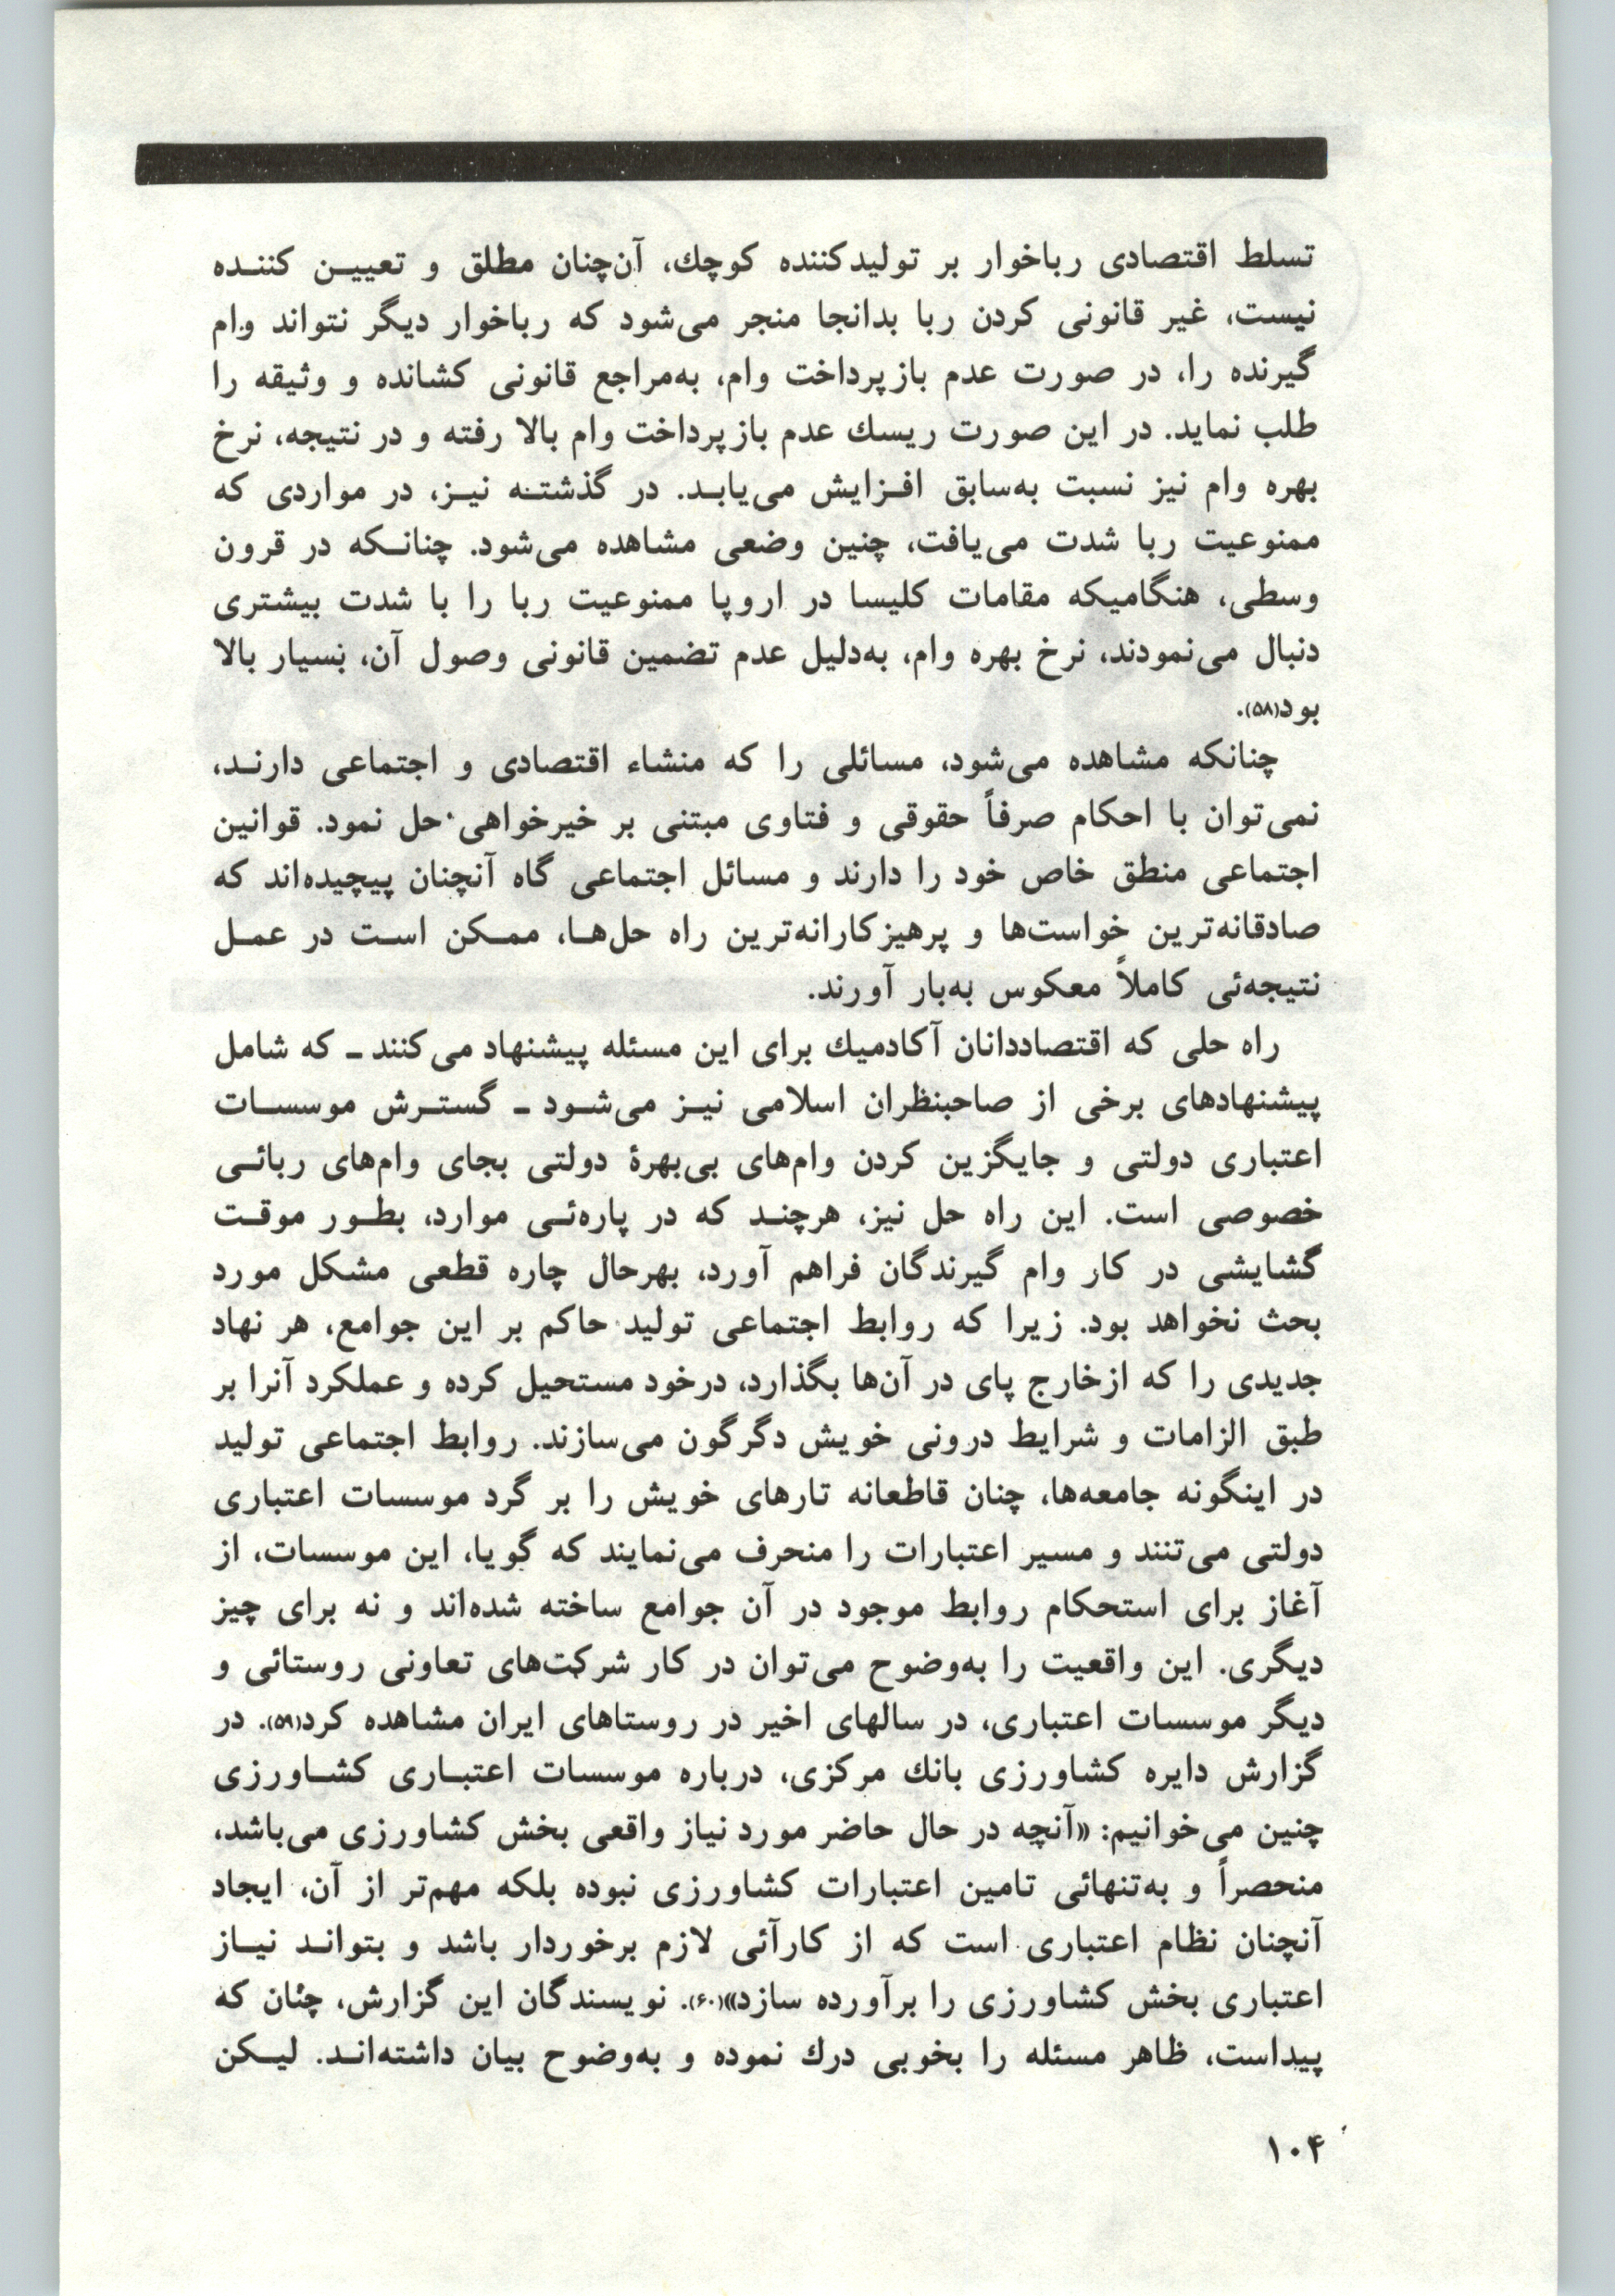 تسلط اقتصادی رباخوار بر تولیدکننده کوچك، آن‌چنان مطلق و تعیین کننده
نیست، غیر قانونی کردن ربا بدانجا منجر می‌شود که رباخوار دیگر نتواند وام
گیرنده را، در صورت عدم بازپرداخت وام، به‌مراجع قانونی کشانده و وثیقه را
طلب نماید. در این صورت ریسك عدم بازپرداخت وام بالا رفته و در نتیجه، نرخ
بهره وام نیز نسبت به‌سابق افزایش می‌یابد. در گذشته نیز، در مواردی که
ممنوعیت ربا شدت می‌یافت، چنین وضعی مشاهده می‌شود. چنانکه در قرون
وسطی، هنگامیکه مقامات کلیسا در اروپا ممنوعیت ربا را با شدت بیشتری
دنبال می‌نمودند، نرخ بهره وام، به‌دلیل عدم تضمین قانونی وصول آن، بسیار بالا
بود(۵۸).
چنانکه مشاهده می‌شود، مسائلی را که منشاء اقتصادی و اجتماعی دارند،
نمی‌توان با احکام صرفاً حقوقی و فتاوی مبتنی بر خیرخواهی حل نمود. قوانین
اجتماعی منطق خاص خود را دارند و مسائل اجتماعی گاه آنچنان پیچیده‌اند که
صادقانه‌ترین خواست‌ها و پرهیزکارانه‌ترین راه حل‌ها، ممکن است در عمل
نتیجه‌ئی کاملاً معکوس به‌بار آورند.
راه حلی که اقتصاددانان آکادمیك برای این مسئله پیشنهاد می‌کنند ـ که شامل
پیشنهادهای برخی از صاحبنظران اسلامی نیز می‌شود ـ گسترش موسسات
اعتباری دولتی و جایگزین کردن وام‌های بی‌بهرۀ دولتی بجای وام‌های ربائی
خصوصی است. این راه حل نیز، هرچند که در پاره‌ئی موارد، بطور موقت
گشایشی در کار وام گیرندگان فراهم آورد، بهرحال چاره قطعی مشکل مورد
بحث نخواهد بود. زیرا که روابط اجتماعی تولید حاکم بر این جوامع، هر نهاد
جدیدی را که ازخارج پای در آن‌ها بگذارد، درخود مستحیل کرده و عملکرد آنرا بر
طبق الزامات و شرایط درونی خویش دگرگون می‌سازند. روابط اجتماعی تولید
در اینگونه جامعه‌ها، چنان قاطعانه تارهای خویش را بر گرد موسسات اعتباری
دولتی می‌تنند و مسیر اعتبارات را منحرف می‌نمایند که گویا، این موسسات، از
آغاز برای استحکام روابط موجود در آن جوامع ساخته شده‌اند و نه برای چیز
دیگری. این واقعیت را به‌وضوح می‌توان در کار شرکت‌های تعاونی روستائی و
دیگر موسسات اعتباری، در سالهای اخیر در روستاهای ایران مشاهده کرد(۵۹). در
گزارش دایره کشاورزی بانك مرکزی، درباره موسسات اعتباری کشاورزی
چنین می‌خوانیم: «آنچه در حال حاضر مورد نیاز واقعی بخش کشاورزی می‌باشد،
منحصراً و به‌تنهائی تامین اعتبارات کشاورزی نبوده بلکه مهم‌تر از آن، ایجاد
آنچنان نظام اعتباری است که از کارآئی لازم برخوردار باشد و بتواند نیاز
اعتباری بخش کشاورزی را برآورده سازد»(۶۰). نویسندگان این گزارش، چنان که
پیداست، ظاهر مسئله را بخوبی درك نموده و به‌وضوح بیان داشته‌اند. لیکن
۱۰۴